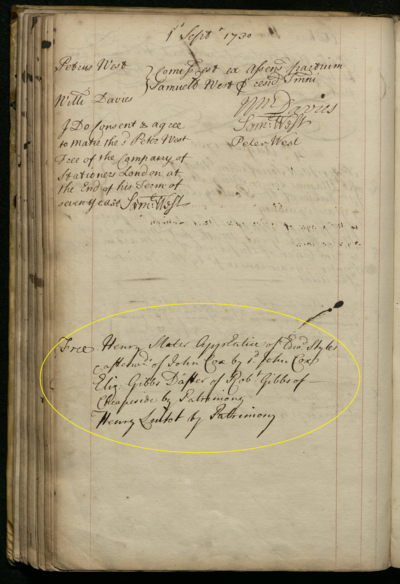 1st Septr 1730
Petrus West
Willi Davies
Comp est ex Assens partium
Samuell West
Wm Davies
Saml West
Peter West
I Do Consent & agree
to make the sd Peter West
Free of the Company of
Stationers London at
the End of his Term of
seven years Saml West
Free Henry Apprentice of Edwd Styles
afterwds of John Cox by sd John Cox
Eliz Gibbs Datter of Robt Gibbs of
Cheapside by Patrimony
Henry Lintot by Patrimony